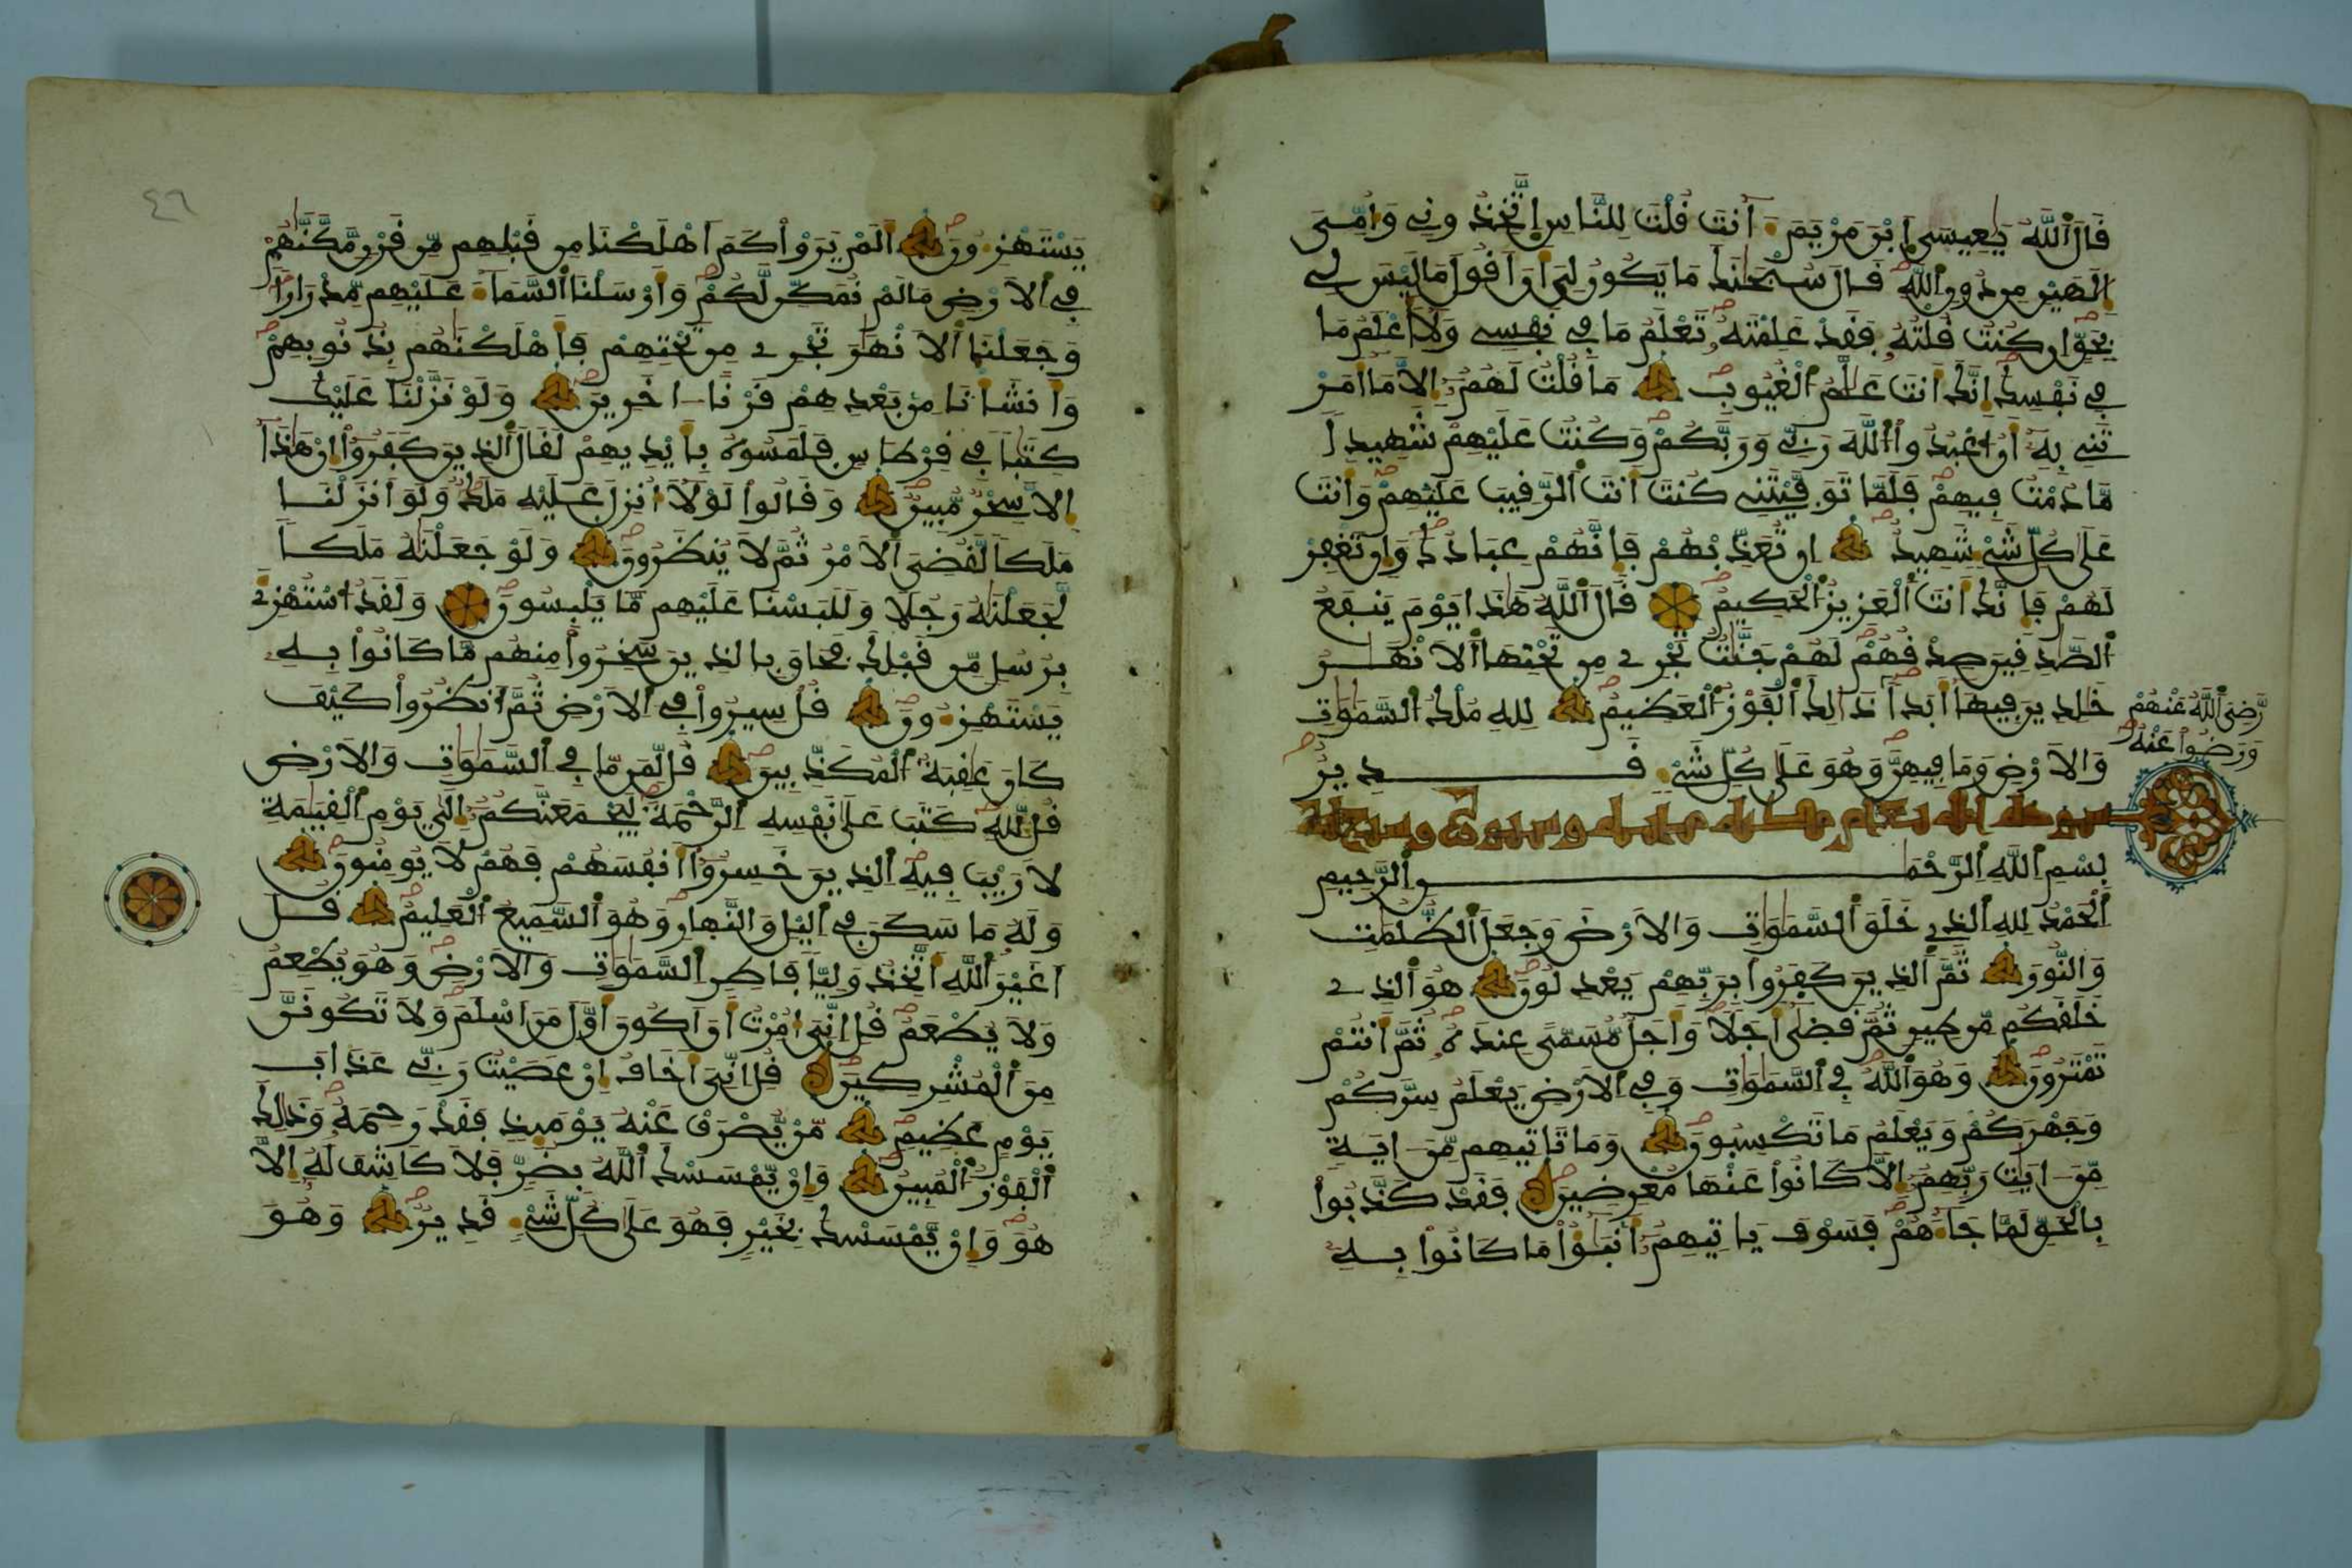 قَالَ ٱللَّهُ يَٰعِيسَى ٱبْنَ مَرْيَمَ ءَآنتَ قُلْتَ لِلنَّاسِ ٱتَّخِذُونِے وَأُمِّيَ
إِلَٰهَيْنِ مِن دُونِ ٱللَّهِ قَالَ سُبْحَٰنَكَ مَا يَكُونُ لِيَ أَنَ اَقُولَ مَا لَيْسَ لِے
بِحَقٍّ إِن كُنتُ قُلْتُهُۥ فَقَدْ عَلِمْتَهُۥ تَعْلَمُ مَا فِے نَفْسِے وَلَآ أَعْلَمُ مَا
فِے نَفْسِكَ إِنَّكَ أَنتَ عَلَّٰمُ ٱلْغُيُوبِ مَا قُلْتُ لَهُمُۥٓ إِلَّا مَآ أَمَرْ
تَنِے بِهِۦٓ أَنُ اُعْبُدُواْ ٱللَّهَ رَبِّے وَرَبَّكُمْ وَكُنتُ عَلَيْهِمْ شَهِيداً
مَّا دُمْتُ فِيهِمْ فَلَمَّا تَوَفَّيْتَنِے كُنتَ أَنتَ ٱلرَّقِيبَ عَلَيْهِمْ وَأَنتَ
عَلَىٰ كُلِّ شَےْءٍ شَهِيدٌ إِن تُعَذِّبْهُمْ فَإِنَّهُمْ عِبَادُكَ وَإِن تَغْفِرْ
لَهُمْ فَإِنَّكَ أَنتَ ٱلْعَزِيزُ ٱلْحَكِيمُ قَالَ ٱللَّهُ هَٰذَا يَوْمَ يَنفَعُ
ٱلصَّٰدِقِينَ صِدْقُهُمْ لَهُمْ جَنَّٰتٌ تَجْرِے مِن تَحْتِهَا ٱلَانْهَٰرُ
خَٰلِدِينَ فِيهَآ أَبَداً ذَٰلِكَ ٱلْفَوْزُ ٱلْعَظِيمُ لِلهِ مُلْكُ ٱلسَّمَٰوَٰتِ
رَّضِيَ ٱللَّهُ عَنْهُمْ
وَرَضُواْ عَنْهُ
وَٱلَارْضِ وَمَا فِيهِنَّ وَهُوَ عَلَىٰ كُلِّ شَےْءٍ قَدِيرٌ
بِسْمِ ٱللَّهِ ٱلرَّحْمَٰنِ ٱلرَّحِيمِ
ٱلْحَمْدُ لِلهِ ٱلذِے خَلَقَ ٱلسَّمَٰوَٰتِ وَٱلَارْضَ وَجَعَلَ ٱلظُّلُمَٰتِ
وَٱلنُّورَ ثُمَّ ٱلذِينَ كَفَرُواْ بِرَبِّهِمْ يَعْدِلُونَ هُوَ ٱلذِے
خَلَقَكُم مِّن طِينٍ ثُمَّ قَضَىٰٓ أَجَلًا وَأَجَلٌ مُّسَمًّى عِندَهُۥ ثُمَّ أَنتُمْ
تَمْتَرُونَ وَهُوَ ٱللَّهُ فِے ٱلسَّمَٰوَٰتِ وَفِے ٱلَارْضِ يَعْلَمُ سِرَّكُمْ
وَجَهْرَكُمْ وَيَعْلَمُ مَا تَكْسِبُونَ وَمَا تَاتِيهِم مِّنَ اٰيَةٍ
مِّنَ اٰيَٰتِ رَبِّهِمُۥٓ إِلَّا كَانُواْ عَنْهَا مُعْرِضِينَ فَقَدْ كَذَّبُواْ
بِٱلْحَقِّ لَمَّا جَآءَهُمْ فَسَوْفَ يَاتِيهِمُۥٓ أَنۢبَٰٓؤُاْ مَا كَانُواْ بِهِۦ
٤٦
يَسْتَهْزِءُونَ أَلَمْ يَرَوْاْ كَمَ اَهْلَكْنَا مِن قَبْلِهِم مِّن قَرْنٍ مَّكَّنَّٰهُمْ
فِے ٱلَارْضِ مَا لَمْ نُمَكِّن لَّكُمْ وَأَرْسَلْنَا ٱلسَّمَآءَ عَلَيْهِم مِّدْرَاراً
وَجَعَلْنَا ٱلَانْهَٰرَ تَجْرِے مِن تَحْتِهِمْ فَأَهْلَكْنَٰهُم بِذُنُوبِهِمْ
وَأَنشَأْنَا مِنۢ بَعْدِهِمْ قَرْناً اٰخَرِينَ وَلَوْ نَزَّلْنَا عَلَيْكَ
كِتَٰباً فِے قِرْطَاسٍ فَلَمَسُوهُ بِأَيْدِيهِمْ لَقَالَ ٱلذِينَ كَفَرُوٓاْ إِنْ هَٰذَآ
إِلَّا سِحْرٌ مُّبِينٌ وَقَالُواْ لَوْلَآ أُنزِلَ عَلَيْهِ مَلَكٌ وَلَوَ اَنزَلْنَا
مَلَكاً لَّقُضِيَ ٱلَامْرُ ثُمَّ لَا يُنظَرُونَ وَلَوْ جَعَلْنَٰهُ مَلَكاً
لَّجَعَلْنَٰهُ رَجُلًا وَلَلَبَسْنَا عَلَيْهِم مَّا يَلْبِسُونَ وَلَقَدُ اسْتُهْزِئَ
بِرُسُلٍ مِّن قَبْلِكَ فَحَاقَ بِالذِينَ سَخِرُواْ مِنْهُم مَّا كَانُواْ بِهِۦ
يَسْتَهْزِءُونَ قُلْ سِيرُواْ فِے ٱلَارْضِ ثُمَّ ٱنظُرُواْ كَيْفَ
كَانَ عَٰقِبَةُ ٱلْمُكَذِّبِينَ قُل لِّمَن مَّا فِے ٱلسَّمَٰوَٰتِ وَالَارْضِ
قُل لِّلهِ كَتَبَ عَلَىٰ نَفْسِهِ ٱلرَّحْمَةَ لَيَجْمَعَنَّكُمُۥٓ إِلَىٰ يَوْمِ ٱلْقِيَٰمَةِ
لَا رَيْبَ فِيهِ ٱلذِينَ خَسِرُوٓاْ أَنفُسَهُمْ فَهُمْ لَا يُومِنُونَ
وَلَهُۥ مَا سَكَنَ فِے ٱليْلِ وَالنَّهَارِ وَهُوَ ٱلسَّمِيعُ ٱلْعَلِيمُ قُلَ
اَغَيْرَ ٱللَّهِ أَتَّخِذُ وَلِيّاً فَاطِرِ ٱلسَّمَٰوَٰتِ وَالَارْضِ وَهُوَ يُطْعِمُ
وَلَا يُطْعَمُ قُلِ اِنِّيَ أُمِرْتُ أَنَ اَكُونَ أَوَّلَ مَنَ اَسْلَمَ وَلَا تَكُونَنَّ
مِنَ ٱلْمُشْرِكِينَ قُلِ اِنِّيَ أَخَافُ إِنْ عَصَيْتُ رَبِّے عَذَابَ
يَوْمٍ عَظِيمٍ مَّنْ يُّصْرَفْ عَنْهُ يَوْمَئِذٍ فَقَدْ رَحِمَهُۥ وَذَٰلِكَ
ٱلْفَوْزُ ٱلْمُبِينُ وَإِنْ يَّمْسَسْكَ ٱللَّهُ بِضُرٍّ فَلَا كَاشِفَ لَهُۥٓ إِلَّا
هُوَ وَإِنْ يَّمْسَسْكَ بِخَيْرٍ فَهُوَ عَلَىٰ كُلِّ شَےْءٍ قَدِيرٌ وَهُوَ